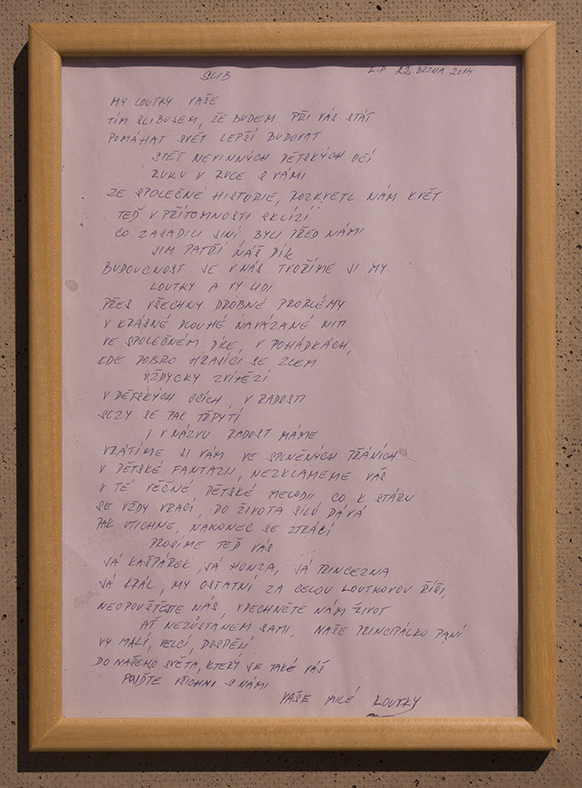 SLIB
L.P. 22. BŘEZNA 2014
MY LOUTKY VAŠE
TÍM SLIBUJEM, ŽE BUDEM PŘI VÁS STÁT
POMÁHAT SVĚT LEPŠÍ BUDOVAT
SVĚT NEVINNÝCH DĚTSKÝCH OČÍ
RUKU V RUCE S VÁMI
ZE SPOLEČNÉ HISTORIE, ROZKVETL NÁM KVĚT
TEĎ V PŘÍTOMNOSTI SKLÍZÍ
CO ZASADILI JINÍ, BYLI PŘED NÁMI
JIM PATŘÍ NÁŠ DÍK
BUDOUCNOST JE V NÁS TVOŘÍME JI MY
LOUTKY A VY LIDI
PŘES VŠECHNY DROBNÉ PROBLÉMY
V KRÁSNÉ DLOUHÉ NAVÁZANÉ NITI
VE SPOLEČNÉM DÍLE, V POHÁDKÁCH,
KDE DOBRO HRAJÍCÍ SE ZLEM
VŽDYCKY ZVÍTĚZÍ
V DĚTSKÝCH OČÍCH, V RADOSTI
SLZY SE PAK TŘPYTÍ
I V NÁZVU RADOST MÁME
VRÁTÍME JI VÁM VE SPLNĚNÝCH PŘÁNÍCH
V DĚTSKÉ FANTAZII, NEZKLAMEME VÁS
V TÉ VĚČNÉ DĚTSKÉ MELODII, CO K STÁRU
SE VŽDY VRACÍ, DO ŽIVOTA SÍLU DÁVÁ
PAK UTICHNE, NAKONEC SE ZTRÁCÍ
PROSÍME TEĎ VÁS
JÁ KAŠPÁREK, JÁ HONZA, JÁ PRINCEZNA
JÁ KRÁL, MY OSTATNÍ ZA CELOU LOUTKOVOU ŘÍŠI,
NEOPOUŠTĚJTE NÁS, VDECHNĚTE NÁM ŽIVOT
AŤ NEZŮSTANEM SAMI, NAŠE PRINCIPÁLKO PANÍ
VY MALÍ, VELCÍ, DOSPĚLÍ
DO NAŠEHO SVĚTA, KTERÝ JE TAKÉ VÁŠ
POJĎTE VŠICHNI S NÁMI
VAŠE MILÉ LOUTKY